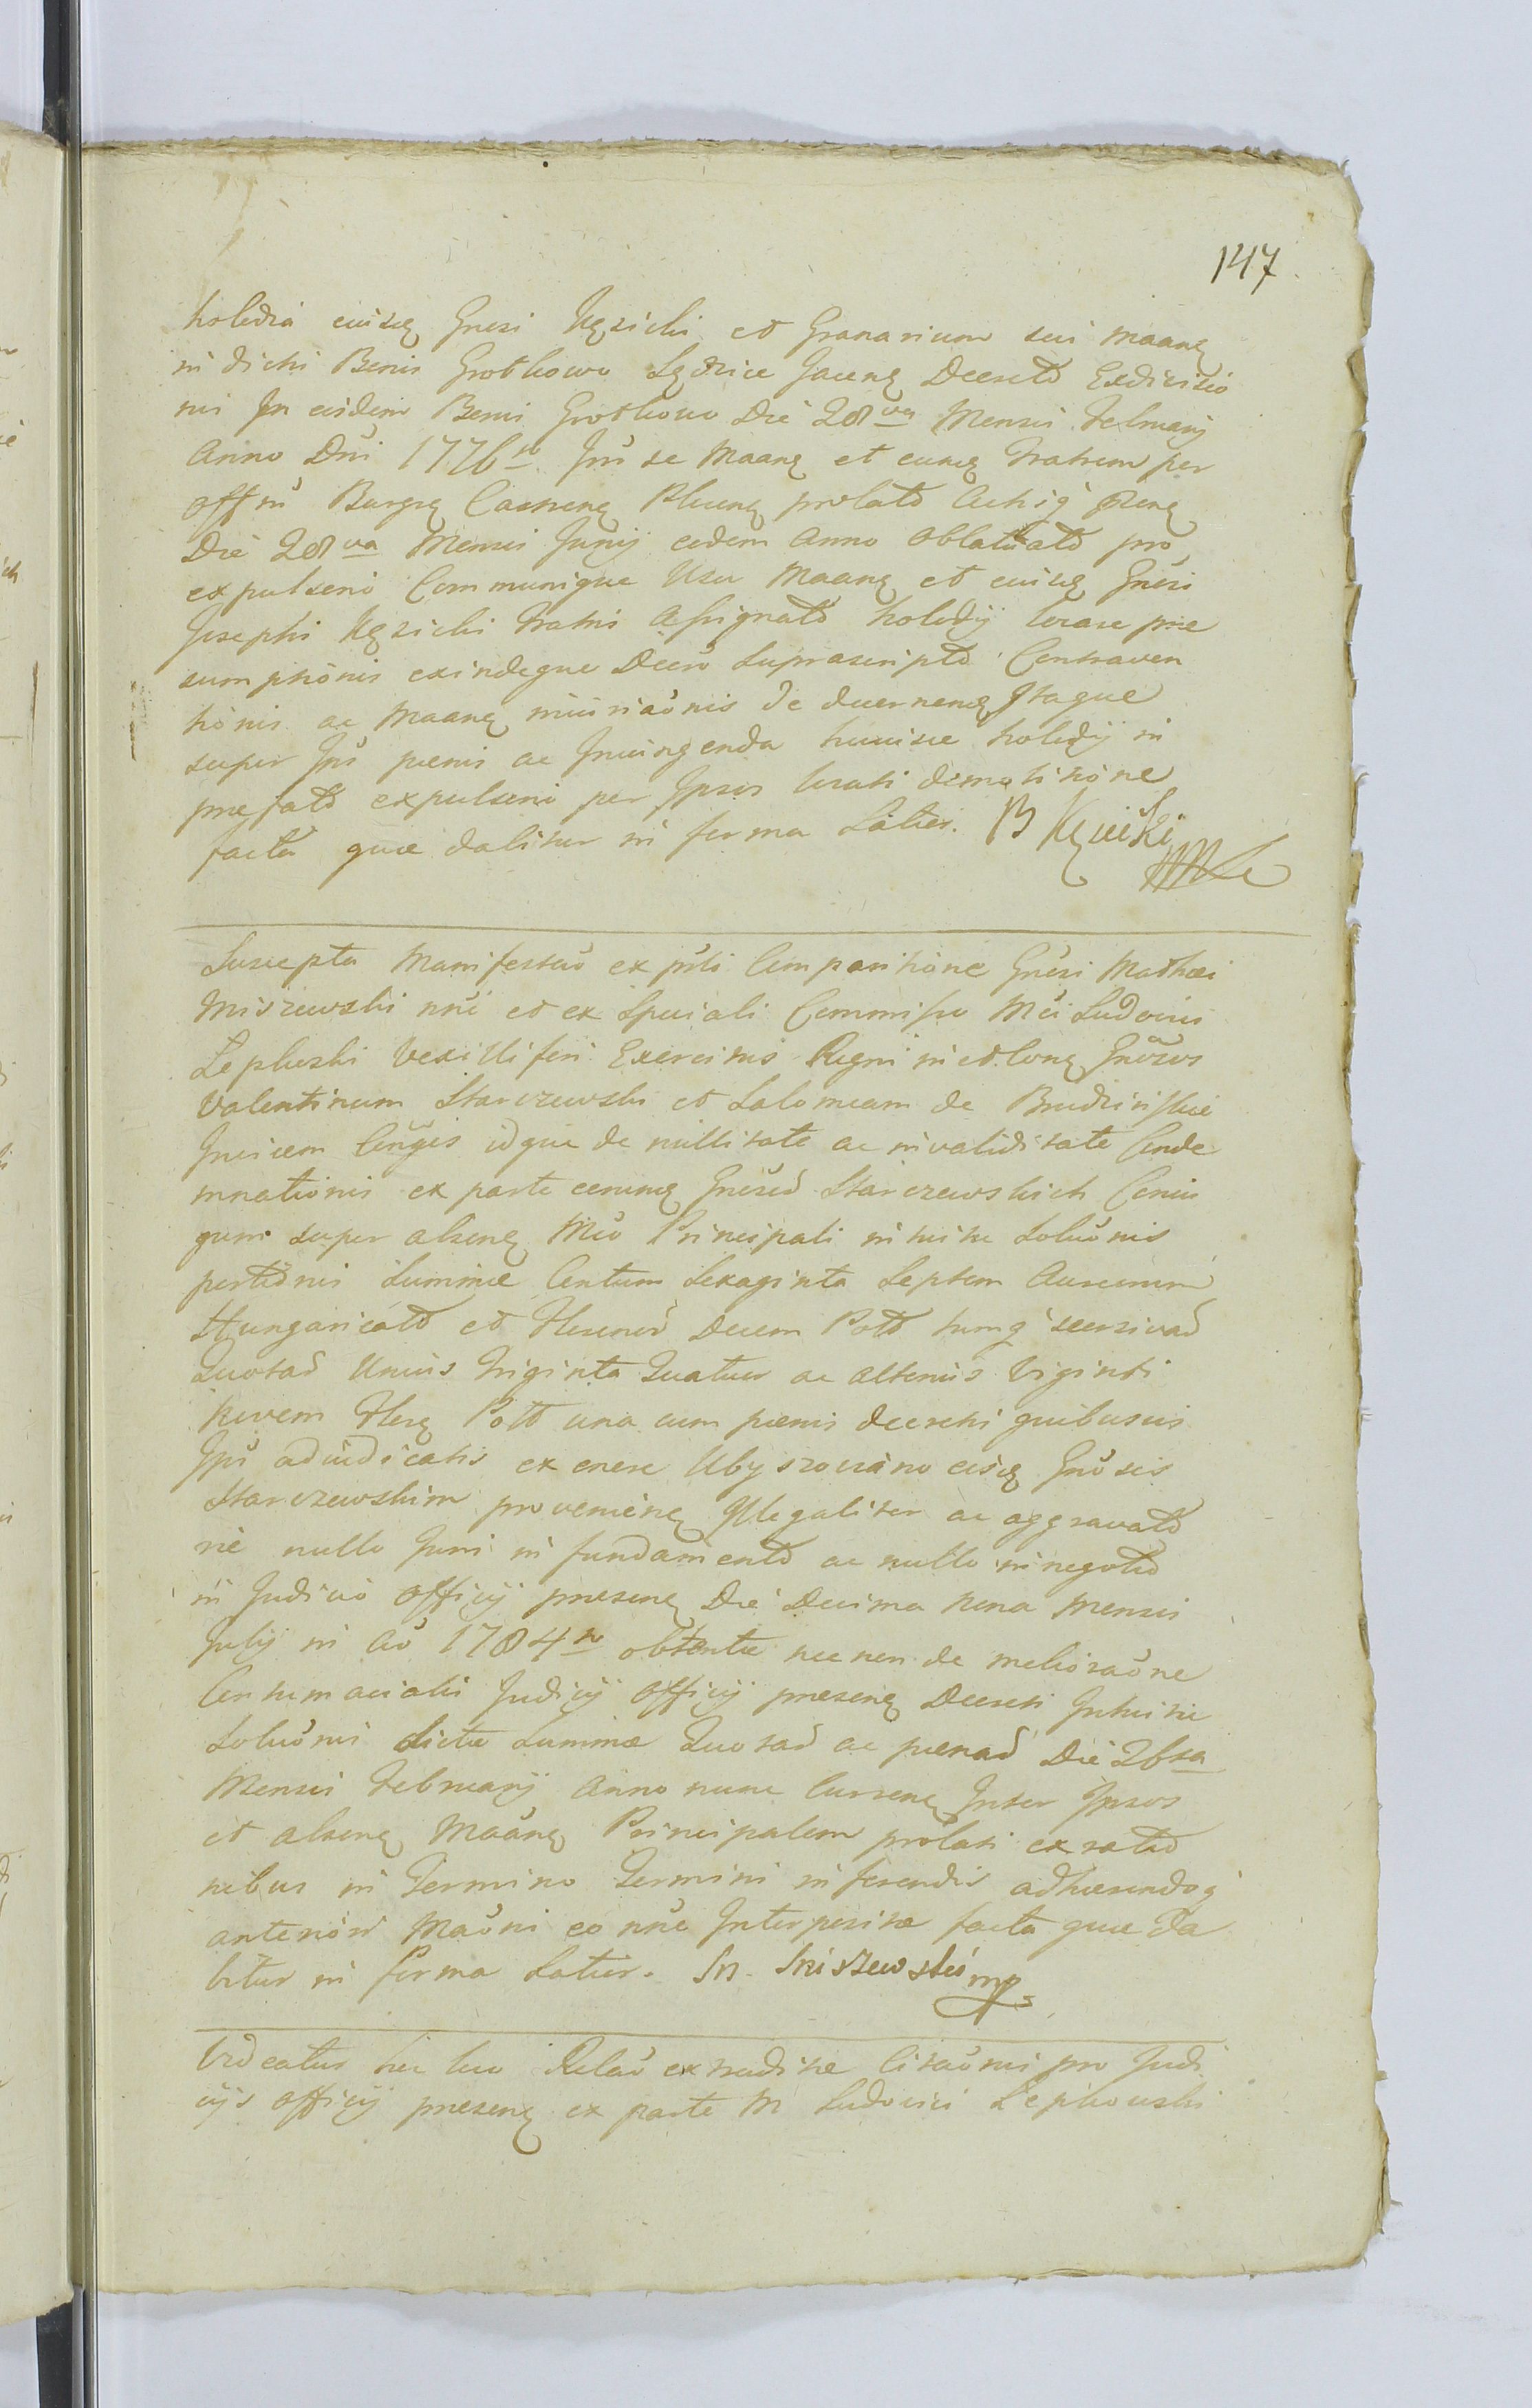 147
holedia eiusq Gnosi Kęsicki et Granarium sui Maanq
in dicti Benis Grotkowo Sędzice Jacenq Decreto Exdivisio
nis In eisdem Benis Grotkowo Die 28va Mensis Februarij
Anno Dni 1776to Inr se Maanq et eumq Fratrem per
Offm Burgrq Castrenq Plocenq prolato Actisq psenq
Die 28va Mensis Junij eodem Anno Oblatuato pro
expulseni Communique Usu Maanq et eiusq Gnosi
Josephi Kęsicki Fratris Assignato holedij
sumptionis exindeque Decro Suprascripto Contraven
tionis ac Maanq iniuriaonis de Itaque
super Ins penis ac Iniungenda huiusce holedij in
prefato expulseni per Ipsos locati demolitione
facta quæ dabitur in forma Latiori. B Kęsicki
mp
Suscepta Manifestao ex psti Comparitione Gnosi Mathæi
Miszewski nne et ex Speciali Commisso Mci Ludovici
Lepkoski Vexilliferi Exercitus Regni in et contq Gnosos
Valentinum Starczewski et Salomeam de Brudzinskie
Invicem Conges idque de nullitate ac invaliditate Conde
mnationis ex parte eorumq Gnosod Starczewskich Coniu
gum super absenq Mco Principali intuitu Soluonis
pertdnis Summæ Centum Sexaginta Septem Aureorum
Hungaricald et Florenod Decem Poll tumq
Quotad Unius Triginta Quatuor ac alterius Viginti
Novem Florq Poll una cum pænis decreti quibusvis
Ips adiudicatis ex onere Ubyszoviano eisq Gnosis
Starczewskim provenienq Illegaliter ac aggravato
rie nullo Juris in fundamento ac nullo in negotio
in Judicio Officij præsenq Die Decima Nona Mensis
Julij in Ao 1784to obtentæ nec non de melioraone
Contumacialis Judicij Officij præsenq Decreti Intuitu
Soluonis dictæ Summæ Quotad ac pænad Die 26ta
Mensis Februarij Anno nunc Currenq Inter Ipsos
et absenq Maanq Principalem prolati ex ratio
nibus in Termino Termini inferendis adhærendoq
anteriori Maoni eo nne Interpositæ facta quæ da
bitur in forma Latiori. M. Miszewski mp
Videatur hic loco Relao extraditæ Citaonis pro Judi
cijs Officij præsenq ex parte M Ludovici Lepkowski